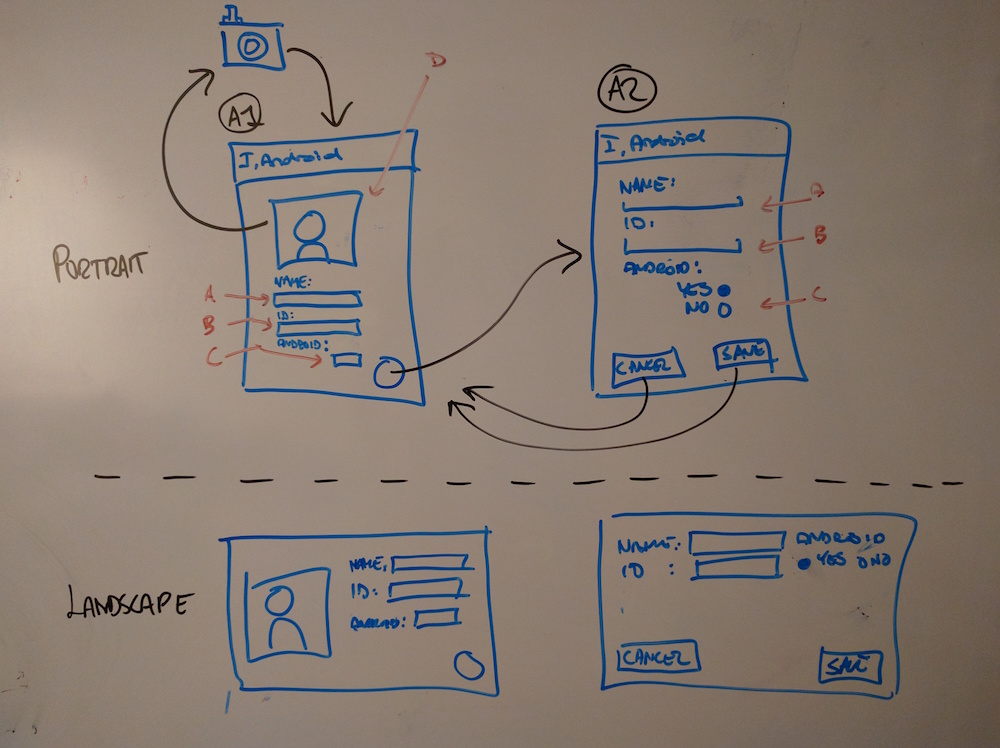 D
A1
A2
I, Android
I, Android
PORTRAIT
NAME:
ID:
ANDROID:
A
B
C
NAME:
ID:
ANDROID:
YES
NO
CANCEL
SAVE
A
B
C
LANDSCAPE
NAME:
ID:
ANDROID:
NAME:
ID :
ANDROID
YES NO
CANCEL
SAVE